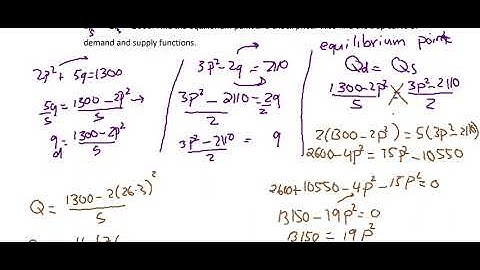 demand and supply functions.
2p² + 5q = 1300
5q/5 = 1300 - 2p²/5
q d = 1300 - 2p²/5
3p² - 2q = 2110
3p² - 2110/2 = 2q/2
3p² - 2110/2 = q
equilibrium point
Qd = Qs
1300 - 2p²/5 = 3p² - 2110/2
2(1300 - 2p²) = 5(3p² - 2110)
2600 - 4p² = 15p² - 10550
2600 + 10550 - 4p² - 15p² = 0
13150 - 19p² = 0
13150 = 19p²
Q = 1300 - 2(26.3)²/5